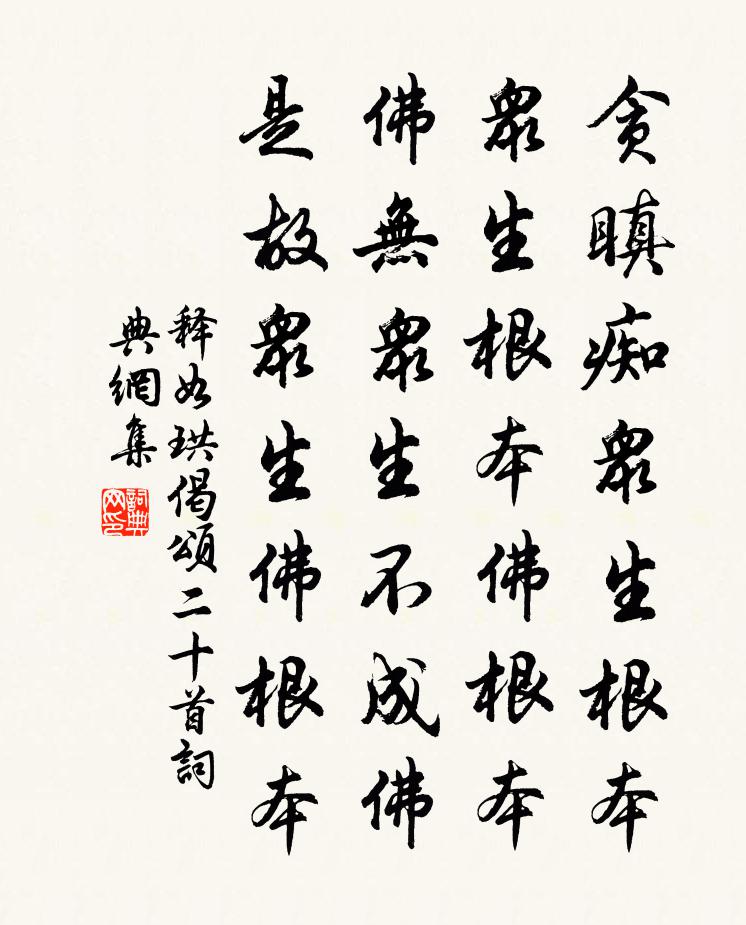 貪瞋痴眾生根本
眾生根本佛根本
佛無眾生不成佛
是故眾生佛根本
释如珙偈頌二十首詞
典網集
詞典
网印